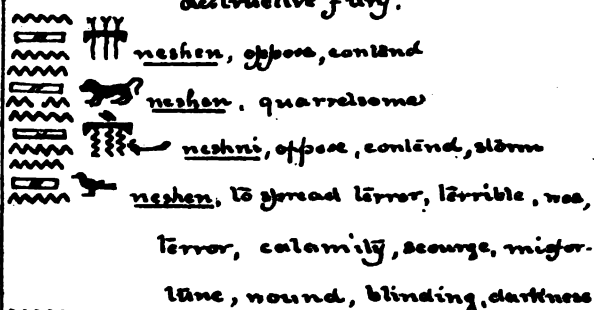 destructive fury.
neshen, oppose, contend
neshen, quarrelsome
neshni, oppose, contend, storm
neshen, to spread terror, terrible, woe,
terror, calamity, scourge, misfor-
tune, wound, blinding, darkness